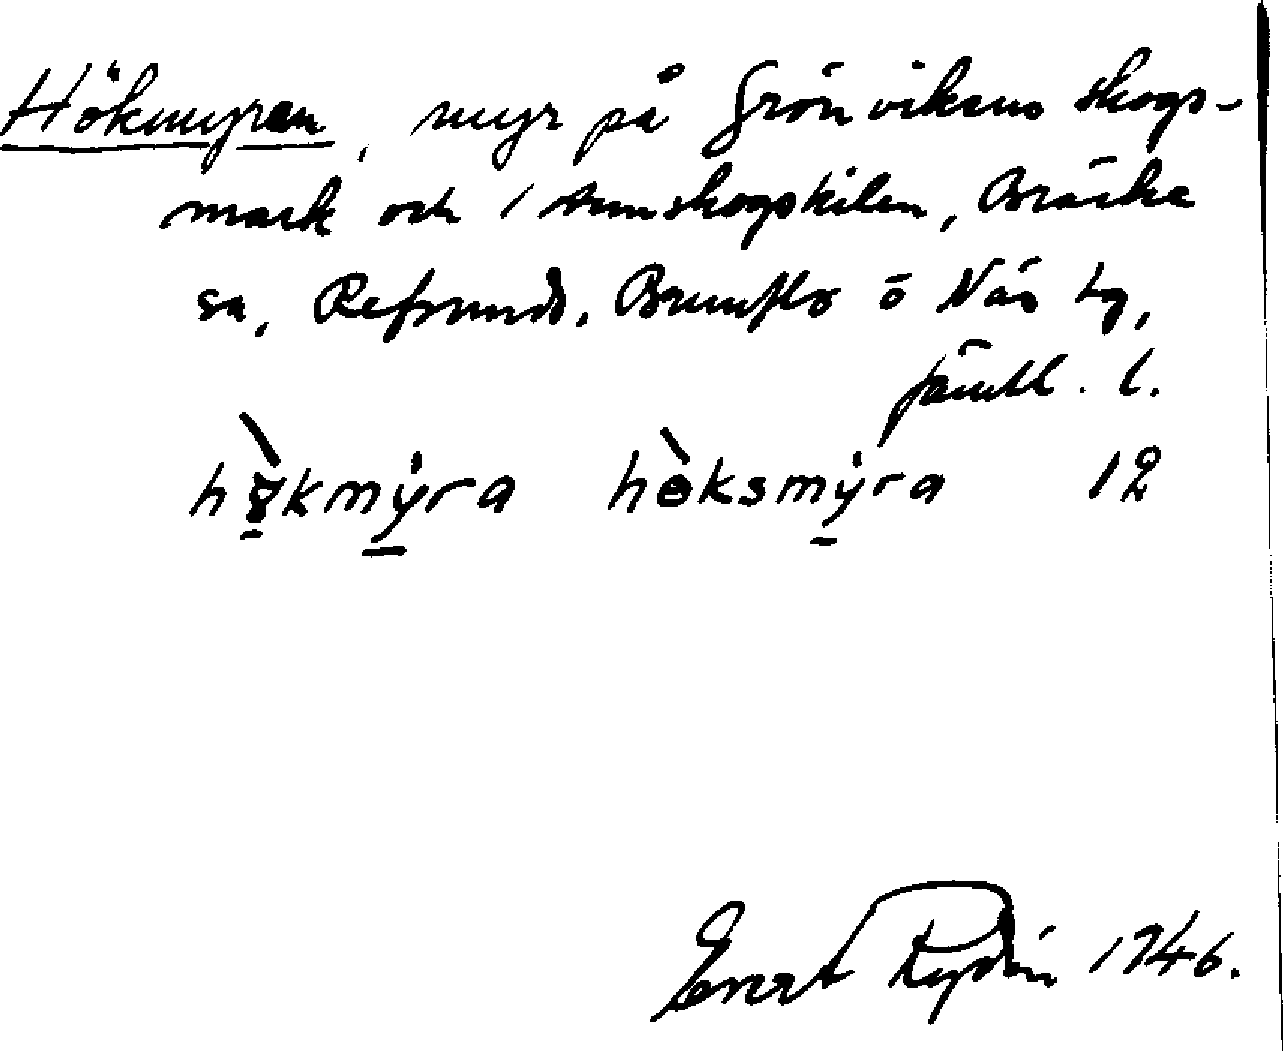 Hökmyren, myr på Grönvikens skogs-
mark och i skogskilen, Bräcke
sn, Refsunds, Brunflo o Näs tg,
Jämtl. l.
hòkmýra hòksmýra 12
Evert Rydén 1946.